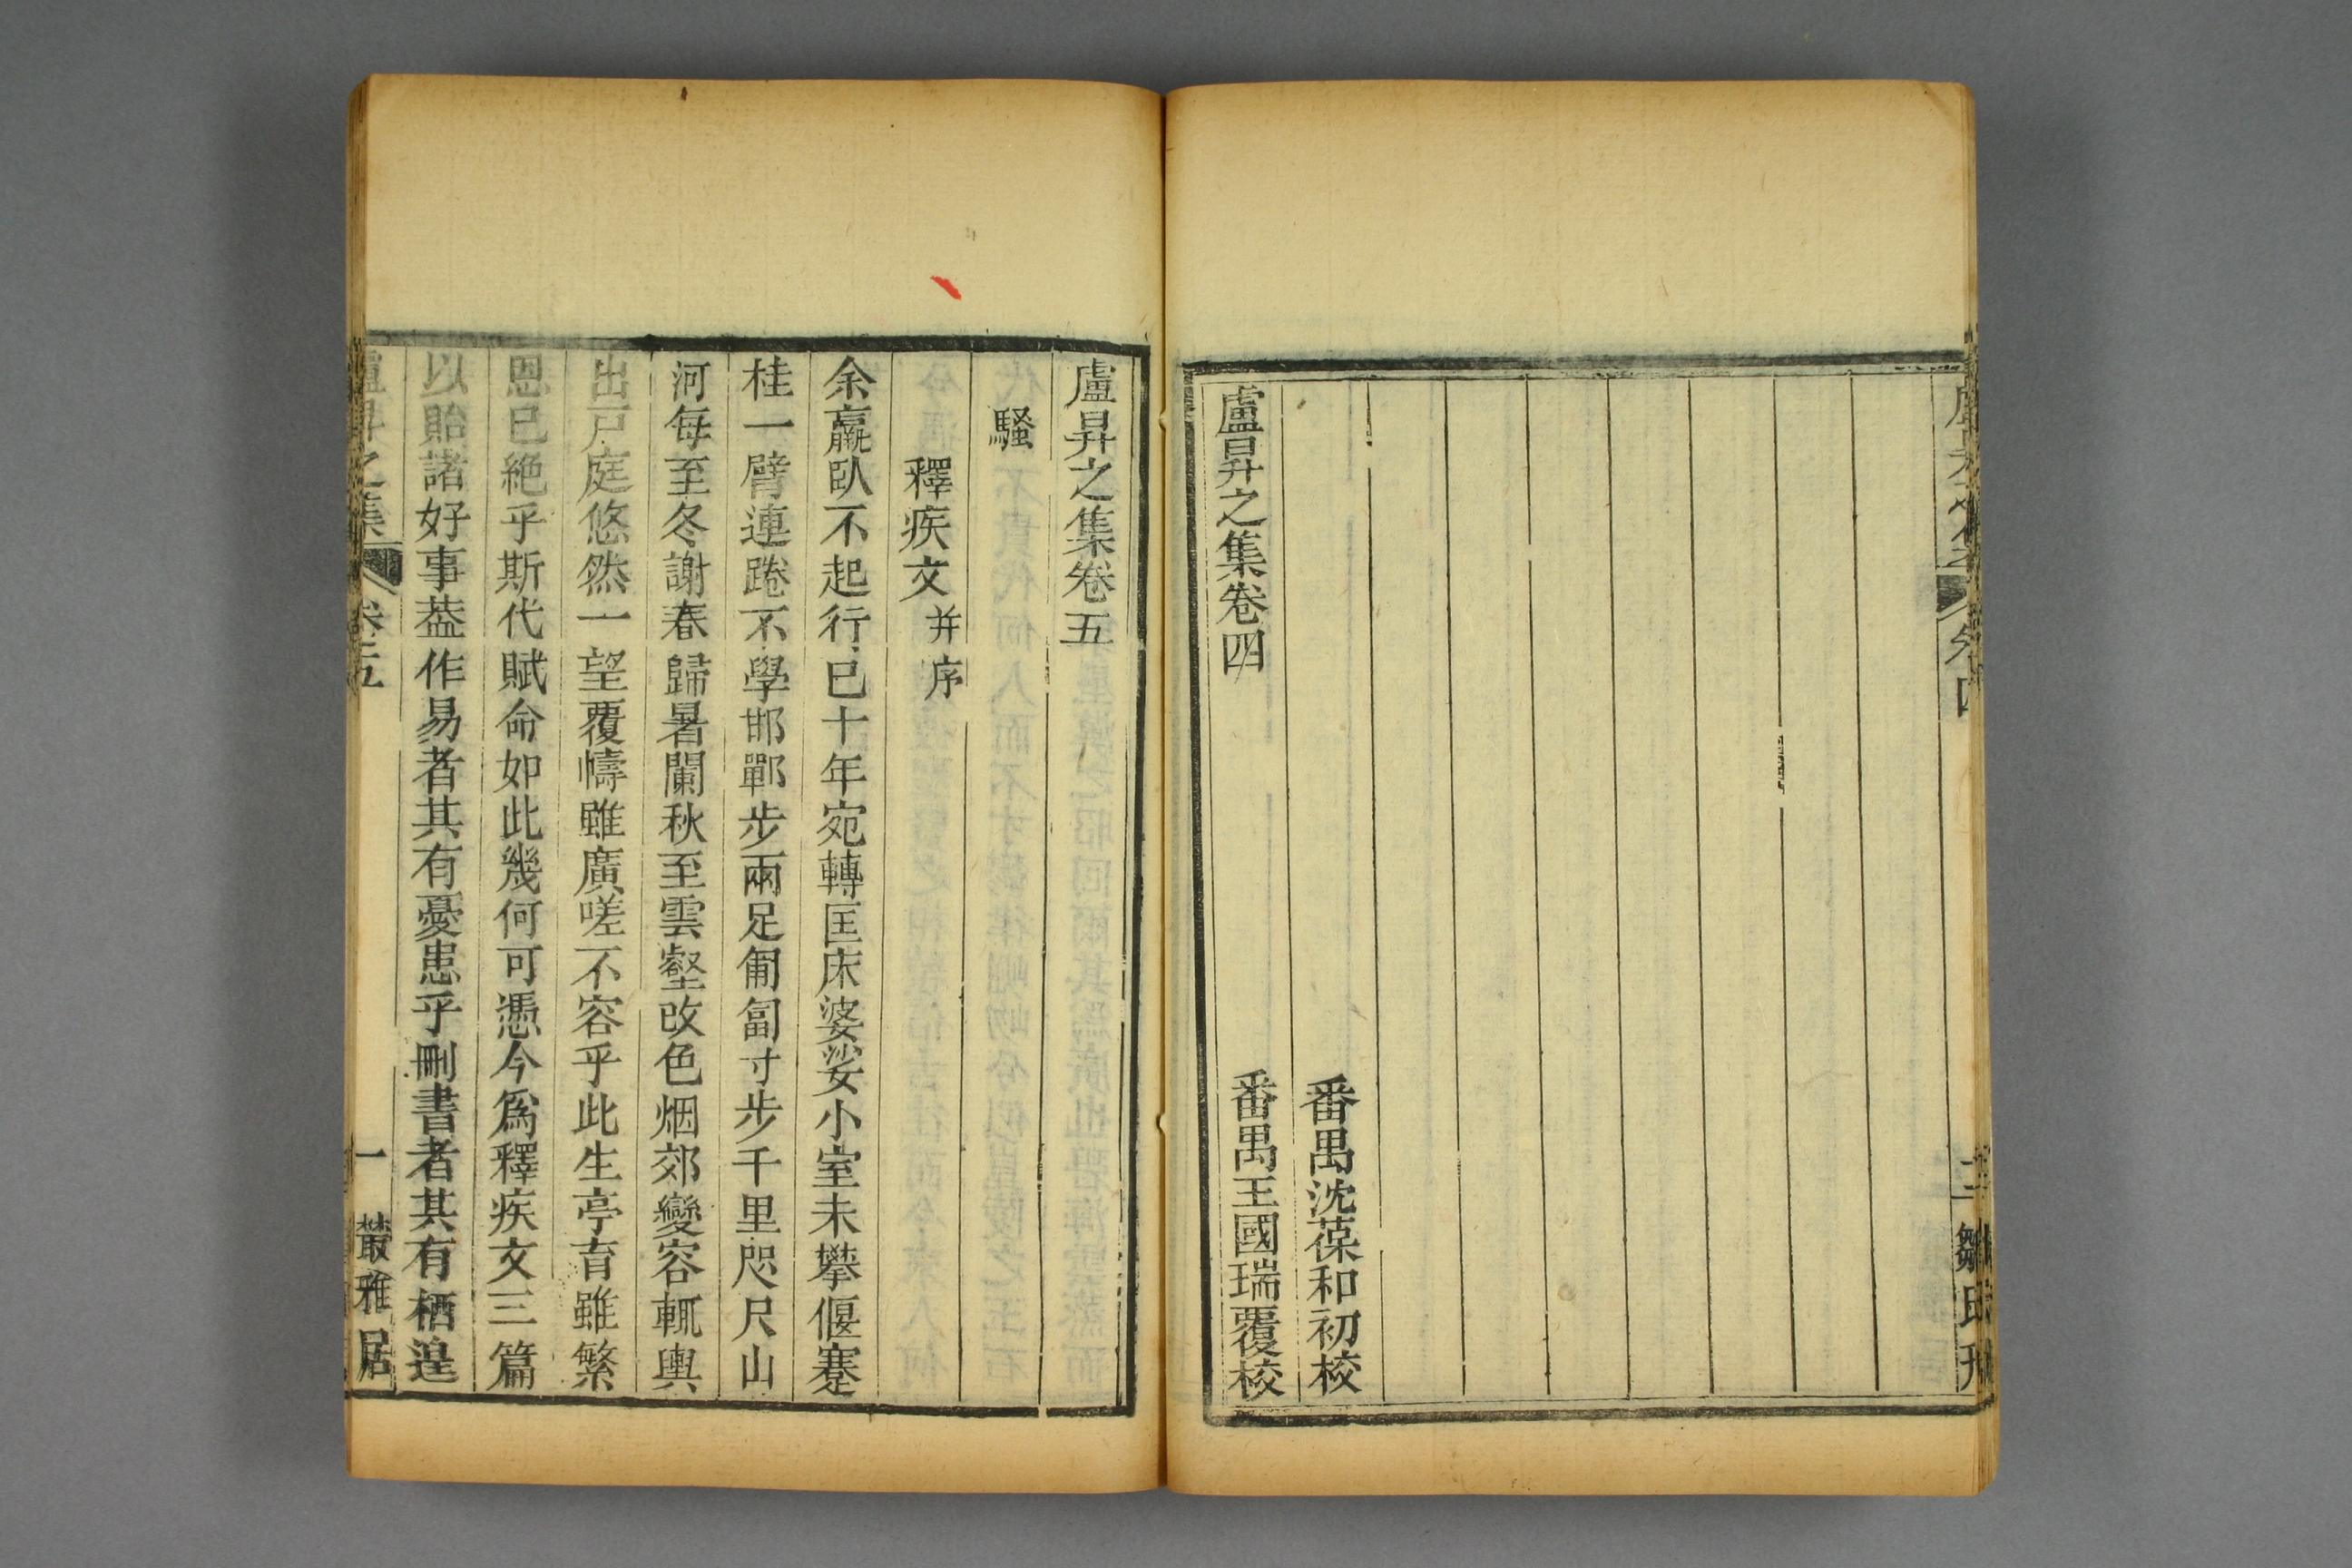 盧昇之集卷四
番禺沈葆和初校
番禺王國瑞覆校
盧昇之集卷五
騷
釋疾文并序
余羸臥不起行已十年宛轉匡床婆娑小室未攀偃蹇
桂一臂連踡不學邯鄲步兩足匍匐寸步千里咫尺山
河每至冬謝春歸暑闌秋至雲壑改色烟郊變容輒輿
出戸庭悠然一望覆幬雖廣嗟不容乎此生亭育雖繁
恩已絶乎斯代賦命如此幾何可憑今爲釋疾文三篇
以貽諸好事葢作易者其有憂患乎刪書者其有栖遑
之集 卷五 一 叢雅居